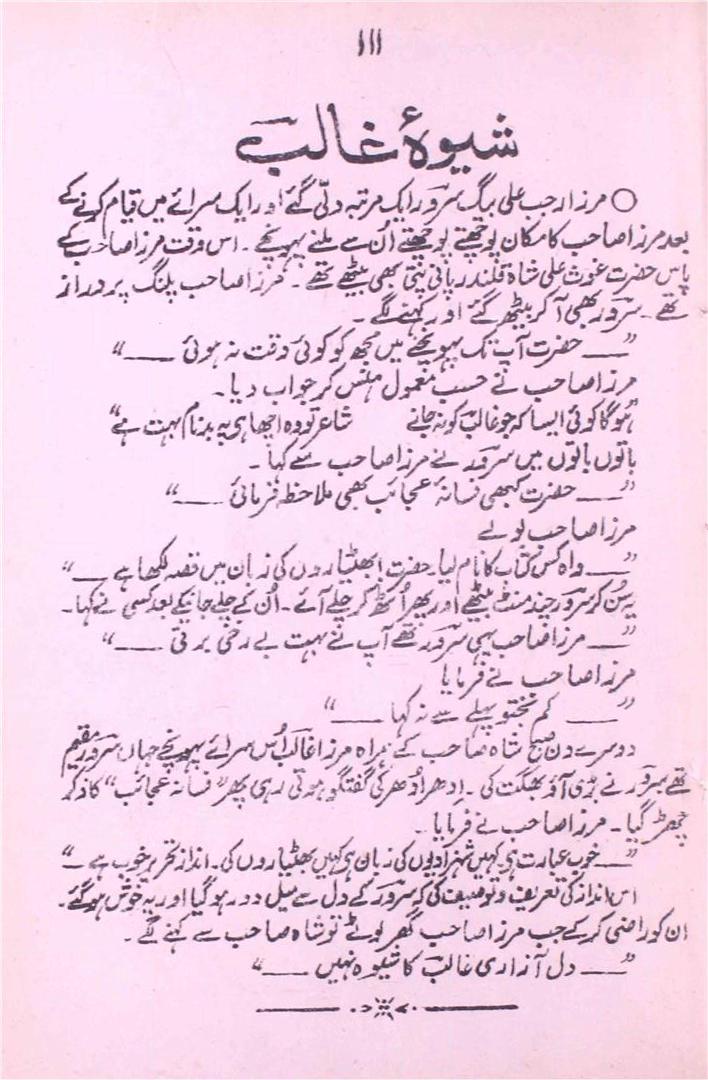 ااا
شیوۂ غالبؔ
○ مرزا رجب علی بیگ سرورؔ ایک مرتبہ دلّی گئے اور ایک سرائے میں قیام کرنے کے
بعد مرزا صاحب کا مکان پوچھتے پوچھتے اُن سے ملنے پہونچے۔ اس وقت مرزا صاحب کے
پاس حضرت غوث علی شاہ قلندر پانی پتی بھی بیٹھے تھے۔ مرزا صاحب پلنگ پر دراز
تھے۔ سرورؔ بھی آ کر بیٹھ گئے اور کہنے لگے۔
”—— حضرت آپ تک پہونچنے میں مجھ کو کوئی دقت نہ ہوئی ——“
مرزا صاحب نے حسب معمول ہنس کر جواب دیا۔
”ہوگا کوئی ایسا کہ جو غالبؔ کو نہ جانے شاعر تو وہ اچھا ہی پہ بدنام بہت ہے“
باتوں باتوں میں سرورؔ نے مرزا صاحب سے کہا۔
”—— حضرت کبھی فسانۂ عجائب بھی ملاحظہ فرمائی ——“
مرزا صاحب بولے
”—— واہ کس کتاب کا نام لیا۔ حضرت! بھٹیاروں کی زبان میں قصہ لکھا ہے ——“
یہ سُن کر سرورؔ چند منٹ بیٹھے اور پھر اُٹھ کر چلے آئے۔ اُن کے چلے جانیکے بعد کسی نے کہا۔
”—— مرزا صاحب یہی سرورؔ تھے آپ نے بہت بے رخی برتی ——“
مرزا صاحب نے فرمایا
”—— کم بختو پہلے سے نہ کہا ——“
دوسرے دن صبح شاہ صاحب کے ہمراہ مرزا غالبؔ اُس سرائے پہونچے جہاں سرورؔ مقیم
تھے سرورؔ نے بڑی آؤ بھگت کی۔ اِدھر اُدھر کی گفتگو ہوتی رہی پھر ”فسانہ عجائب“ کا ذکر
چھڑ گیا۔ مرزا صاحب نے فرمایا۔
”—— خوب عبارت ہے کہیں شہزادیوں کی زبان ہے کہیں بھٹیاروں کی۔ انداز تحریر خوب ہے ——“
اس انداز کی تعریف و توصیف کی کہ سرورؔ کے دل سے میل دور ہو گیا اور یہ خوش ہو گئے۔
ان کو راضی کر کے جب مرزا صاحب گھر لوٹے تو شاہ صاحب سے کہنے لگے۔
”—— دل آزاری غالبؔ کا شیوہ نہیں ——“